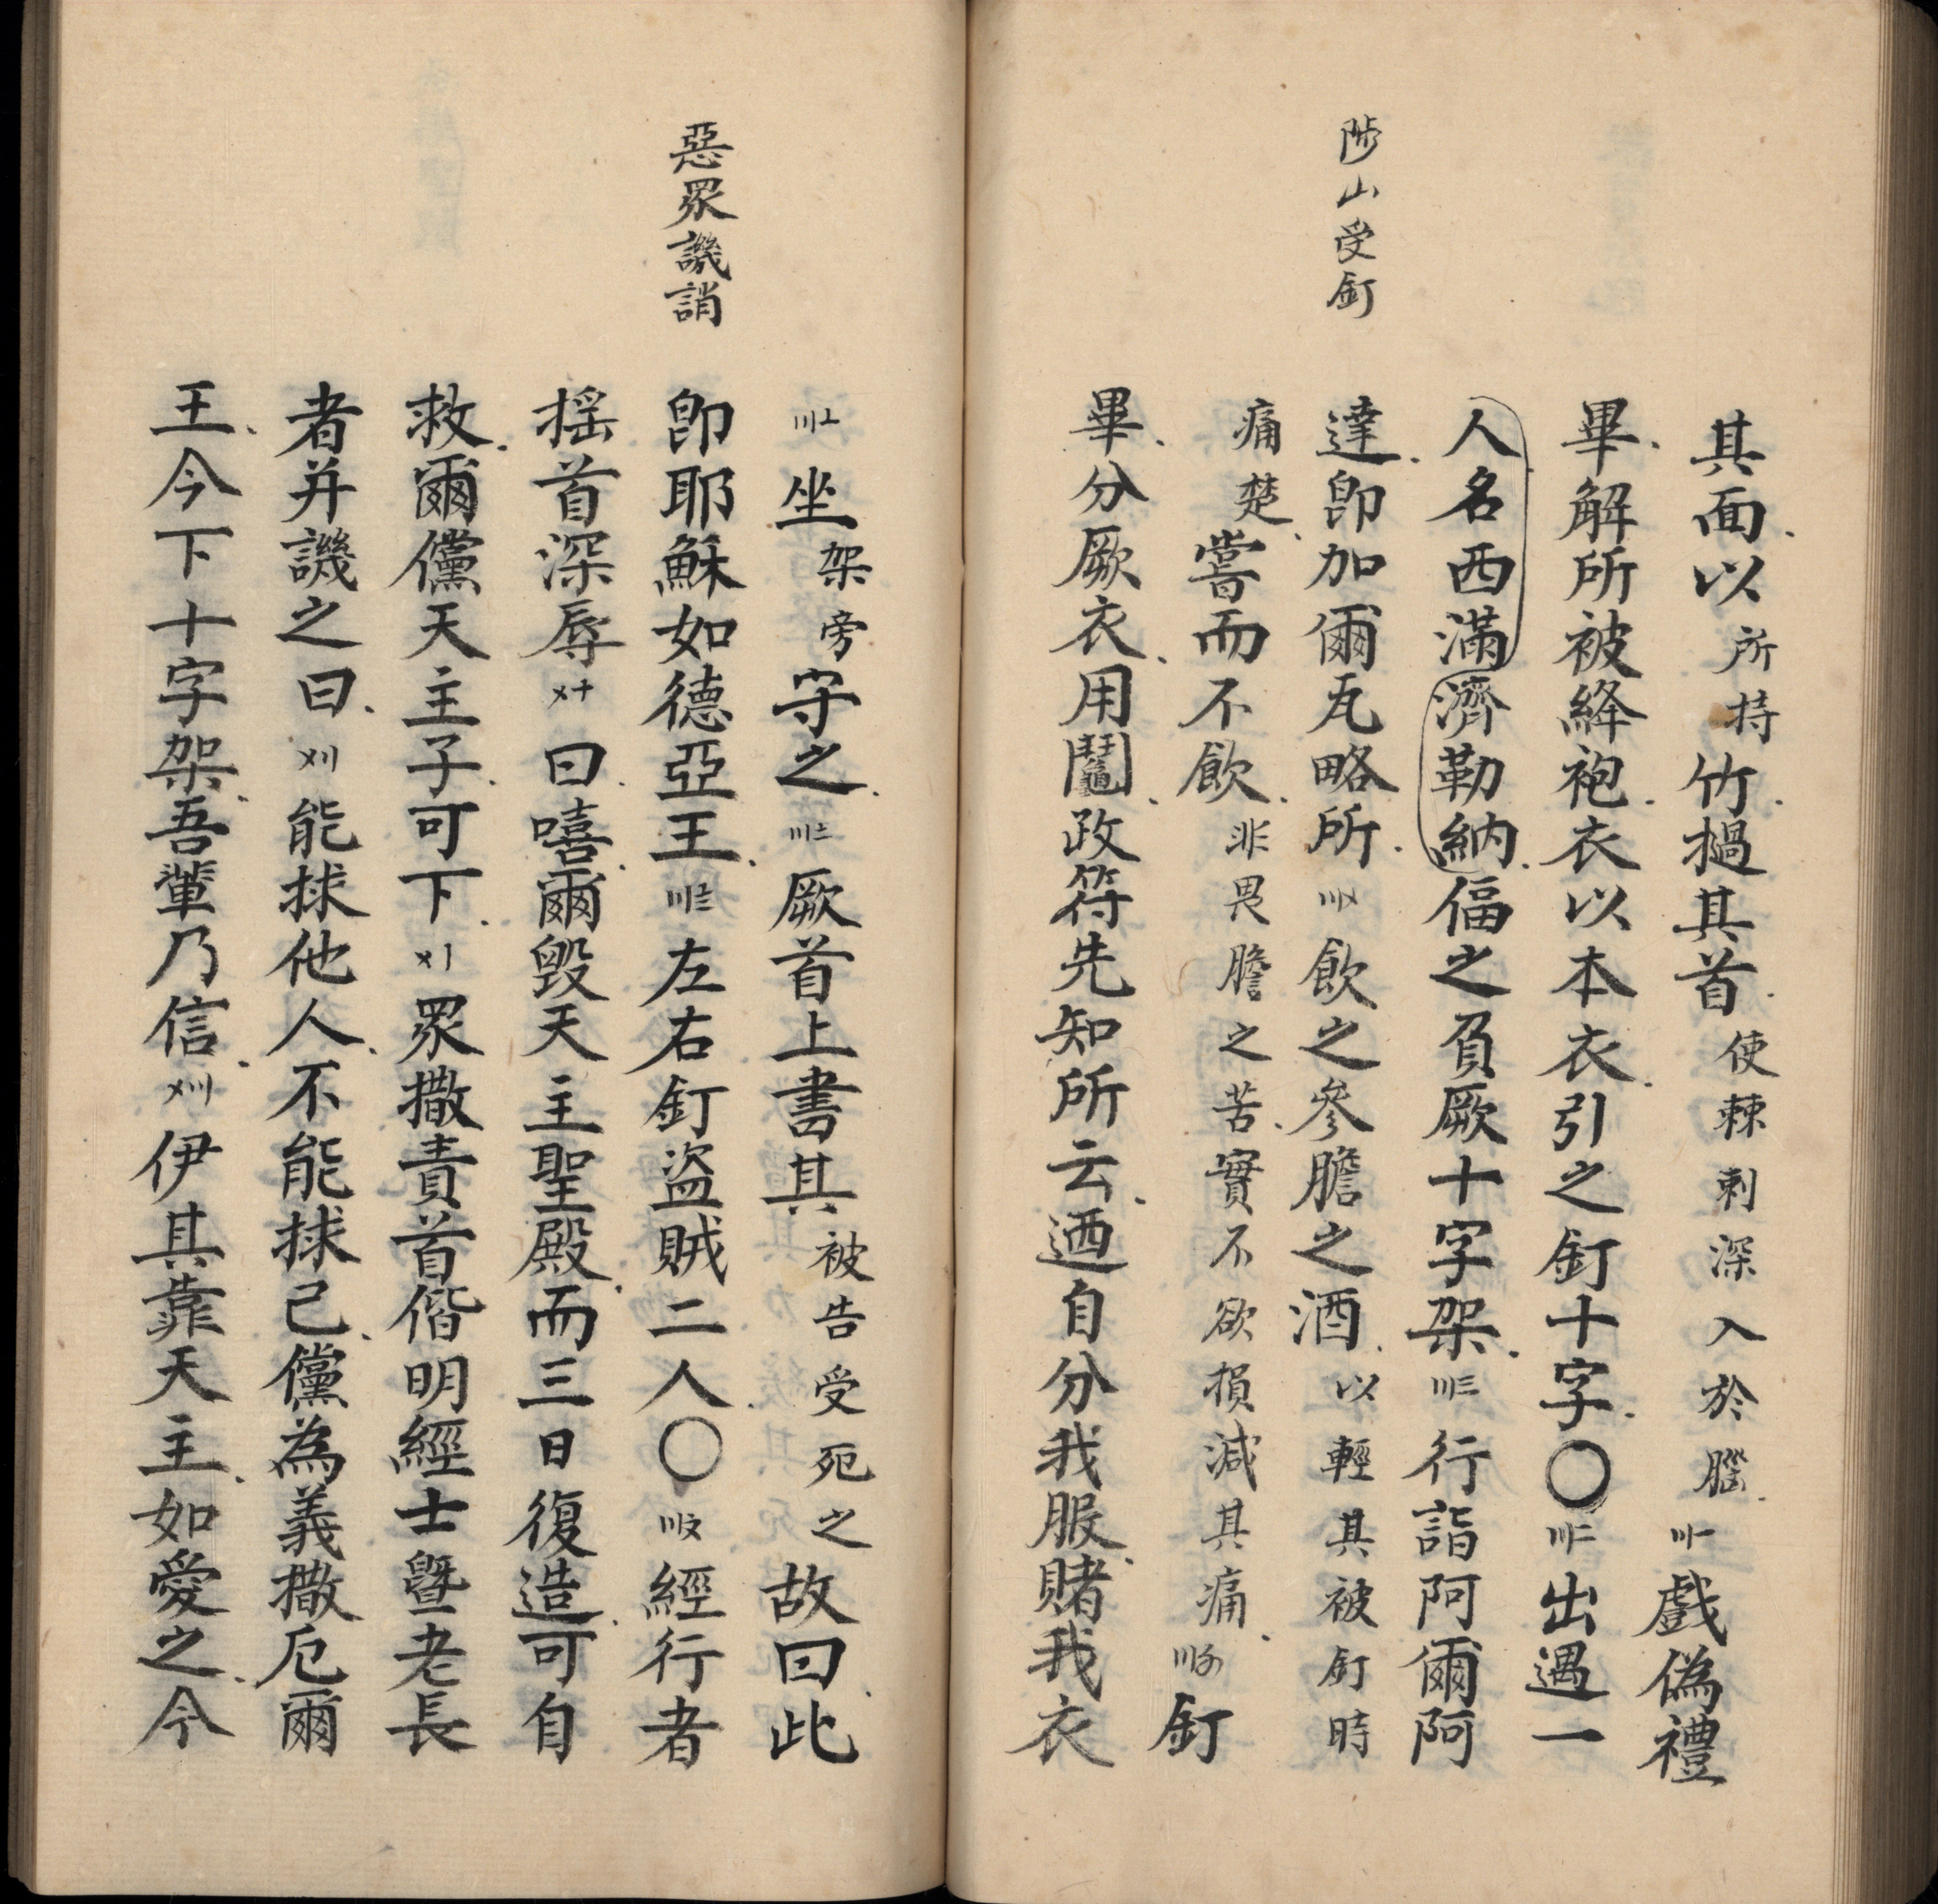 陟山受釘
其面以所持竹撾其首使棘刺深入於腦〣〡戲偽禮
畢解所被絳袍衣以本衣引之釘十字〇〣二出遇一
人名西滿濟勒納偪之負厥十字架〣三行詣阿爾阿
達即加爾瓦略所〣〤飲之參膽之酒以輕其被釘時
痛楚嘗而不飲非畏膽之苦實不欲損減其痛〣〥釘
畢分厥衣用鬮政符先知所云迺自分我服賭我衣
惡眾譏誚
〣〦坐架旁守之〣〧厥首上書其被告受死之故曰此
即耶穌如德亞王〣〨左右釘盜賊二人〇〣〩經行者
搖首深辱〤十曰嘻爾毀天主聖殿而三日復造可自
救爾儻天主子可下〤〡眾撒責首偕明經士曁老長
者并譏之曰〤〢能捄他人不能捄己儻為義撒厄爾
王今下十字架吾輩乃信〤〣伊其靠天主如愛之今